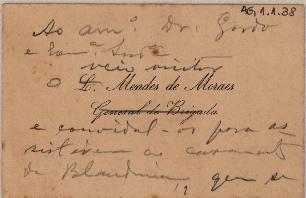 AG, 1.1.38
Ao amº. Dr. Gordo
e Exmª.
veio visitar
O L. Mendes de Moraes
General de Brigada
e convidal-os para as
sistirem o casamento
de Blandina, que se